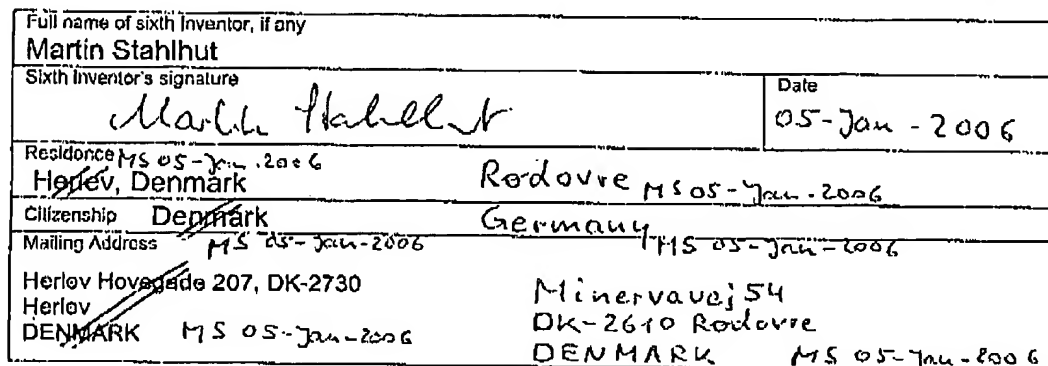 Full name of sixth Inventor, if any
Martin Stahlhut
Sixth Inventor's signature
Date
Martin Stahlhut
05-Jan-2006
Residence MS 05-Jan.2006
Herlev, Denmark
Rodovre MS 05-Jan-2006
Citizenship Denmark
Germany
Mailing Address MS 05-Jan-2006
MS 05-Jan-2006
Herlov Hovegade 207, DK-2730
Herlov
DENMARK MS 05-Jan-2006
Minervavej 54
DK-2610 Rodovre
DENMARK MS 05-Jan-2006